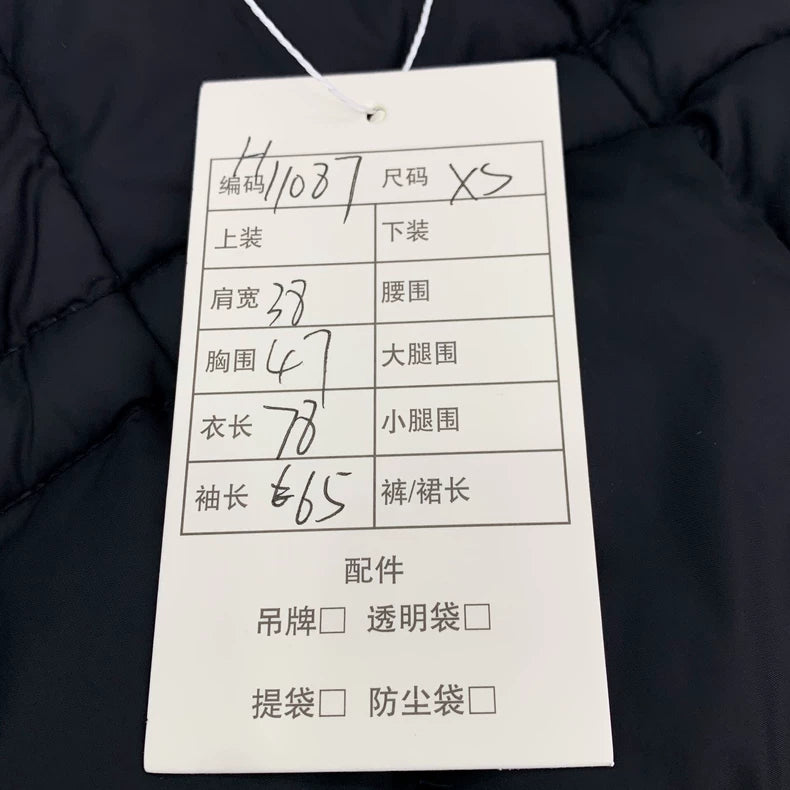 编码 H11087 尺码 XS
上装 下装
肩宽 38 腰围
胸围 47 大腿围
衣长 78 小腿围
袖长 65 裤/裙长
配件
吊牌□ 透明袋□
提袋□ 防尘袋□